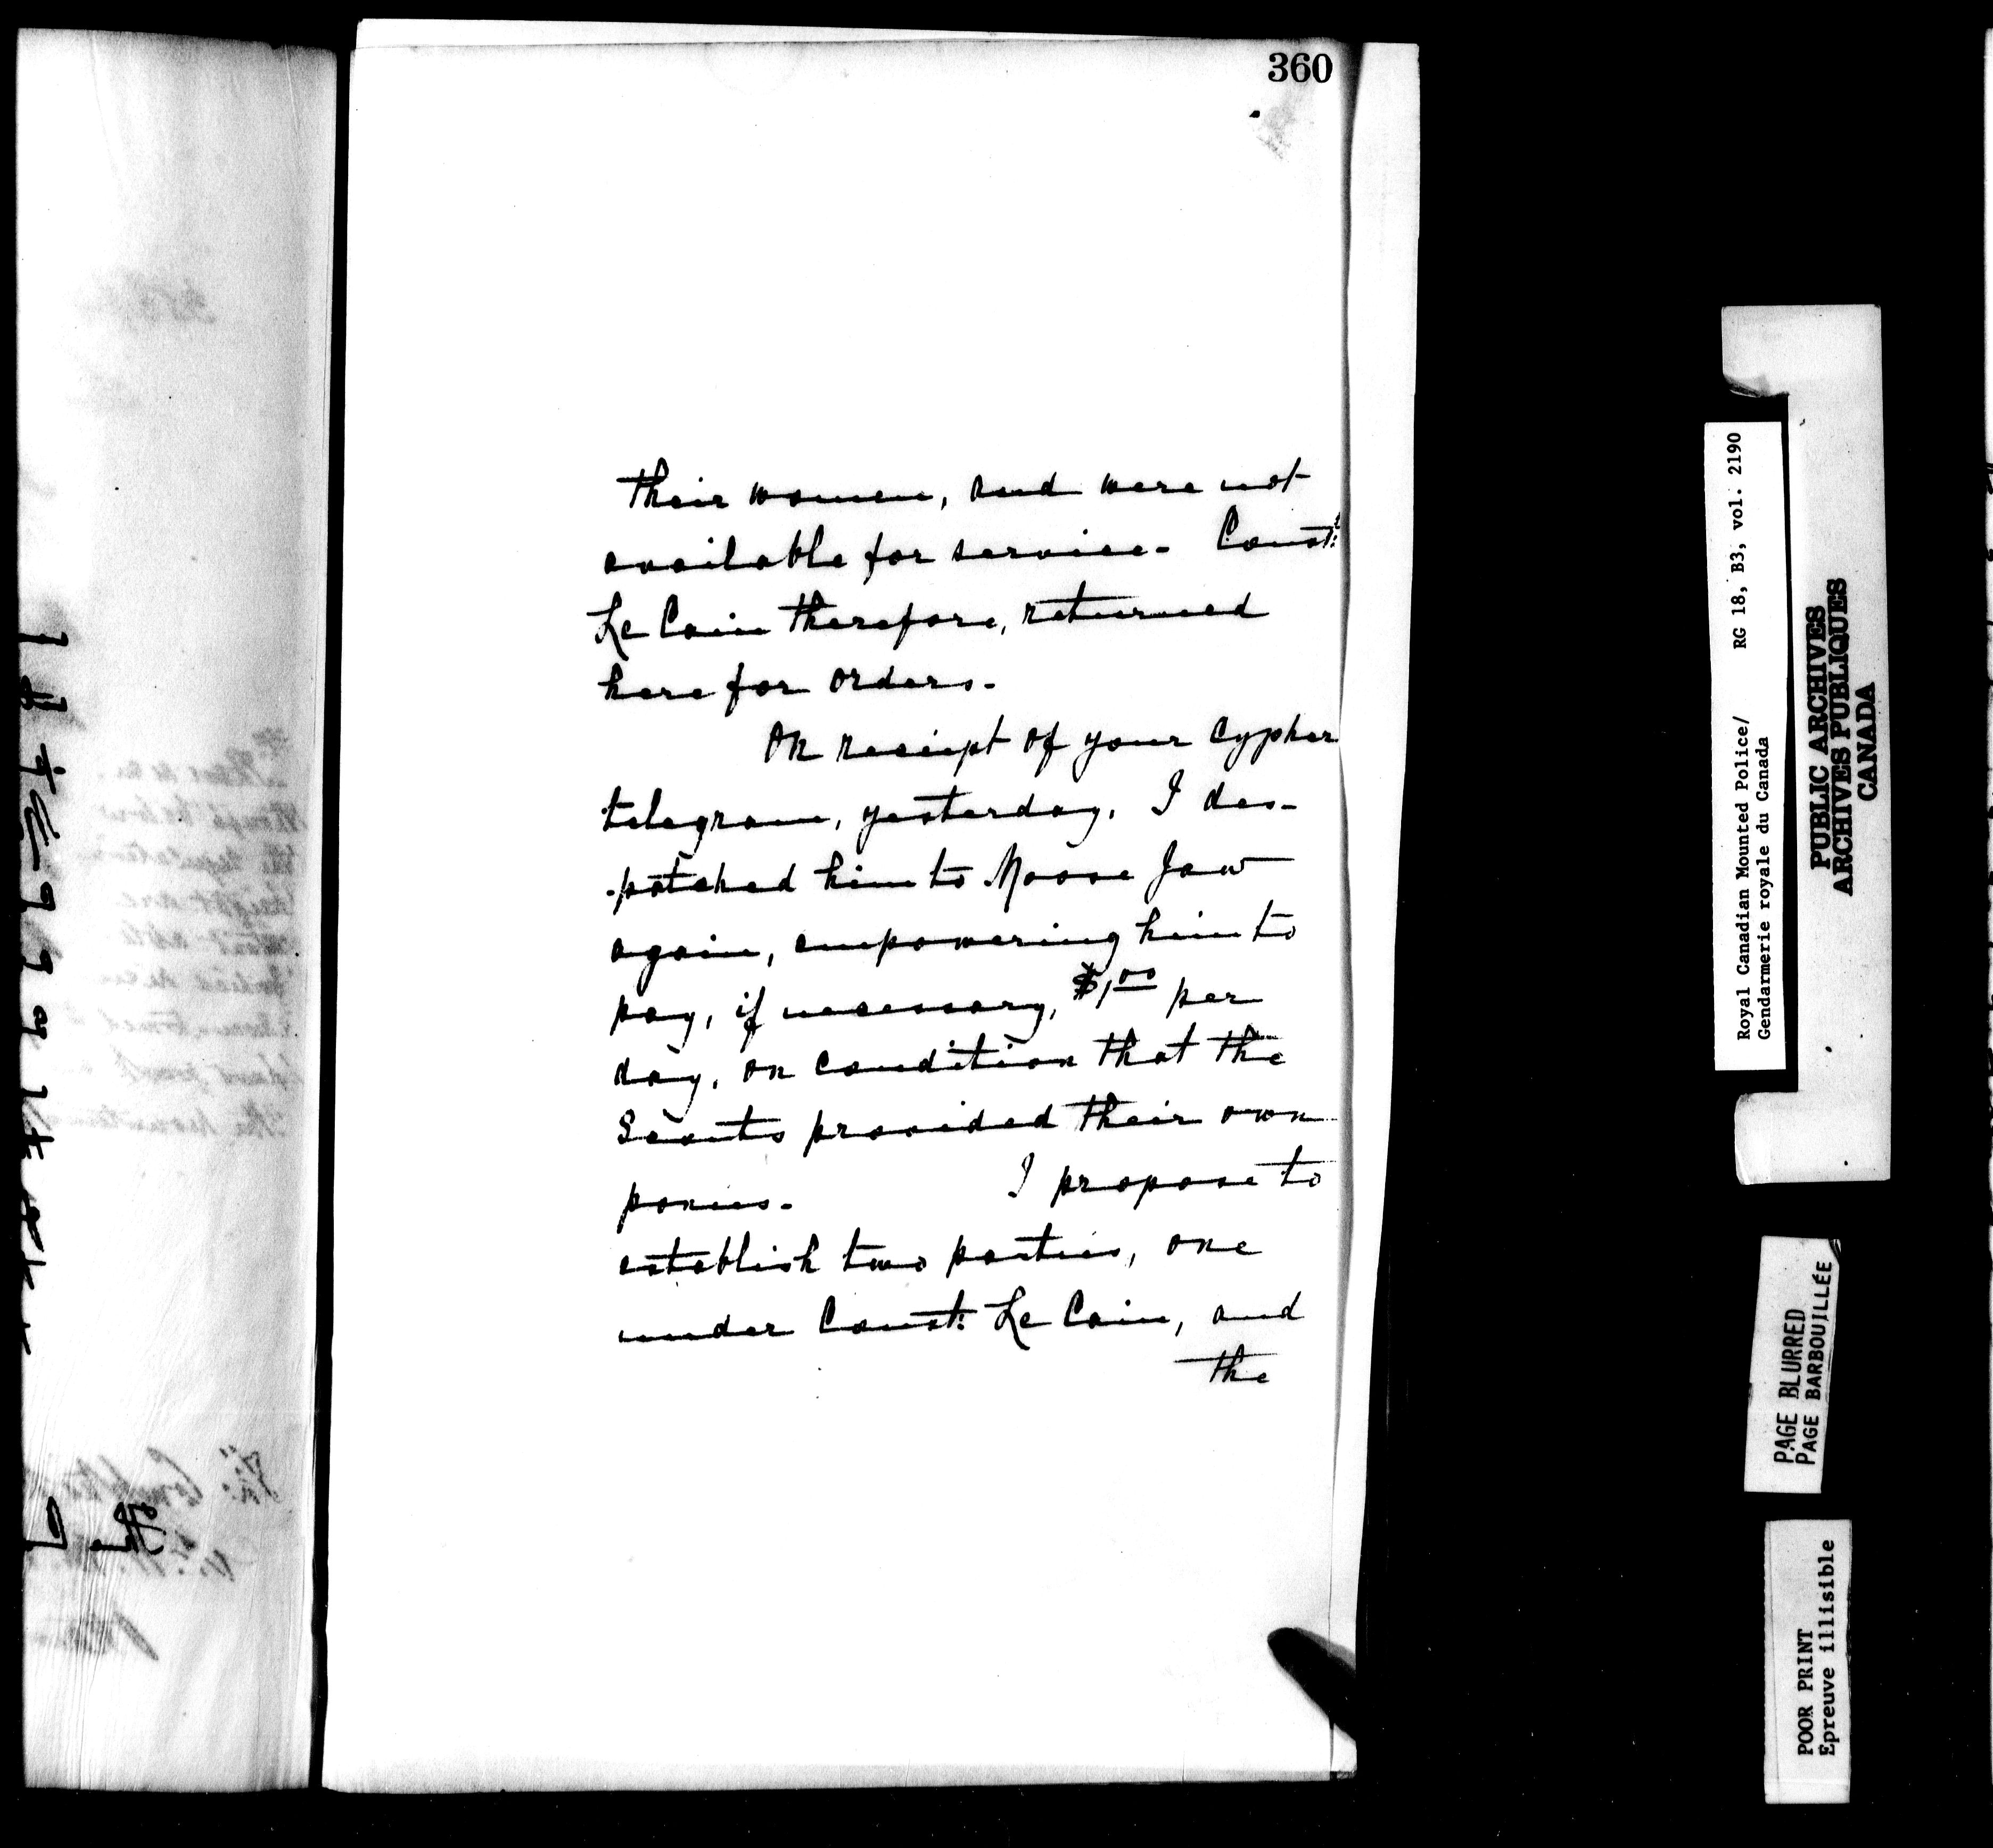 360
their women, and were not
available for service. Const:
Le Cain therefore, returned
here for orders.
On receipt of your cypher
telegram, yesterday, I des-
-patched him to Moose Jaw
again, empowering him to
pay, if necessary, $1,00 per
day, on condition that the
Scouts provided their own
ponies. I propose to
establish two parties, one
under Const: Le Cain, and
the
Royal Canadian Mounted Police/ RG 18, B3, vol. 2190
Gendarmerie royale du Canada
PUBLIC ARCHIVES
ARCHIVES PUBLIQUES
CANADA
PAGE BLURRED
PAGE BARBOUILLÉE
POOR PRINT
Epreuve illisible